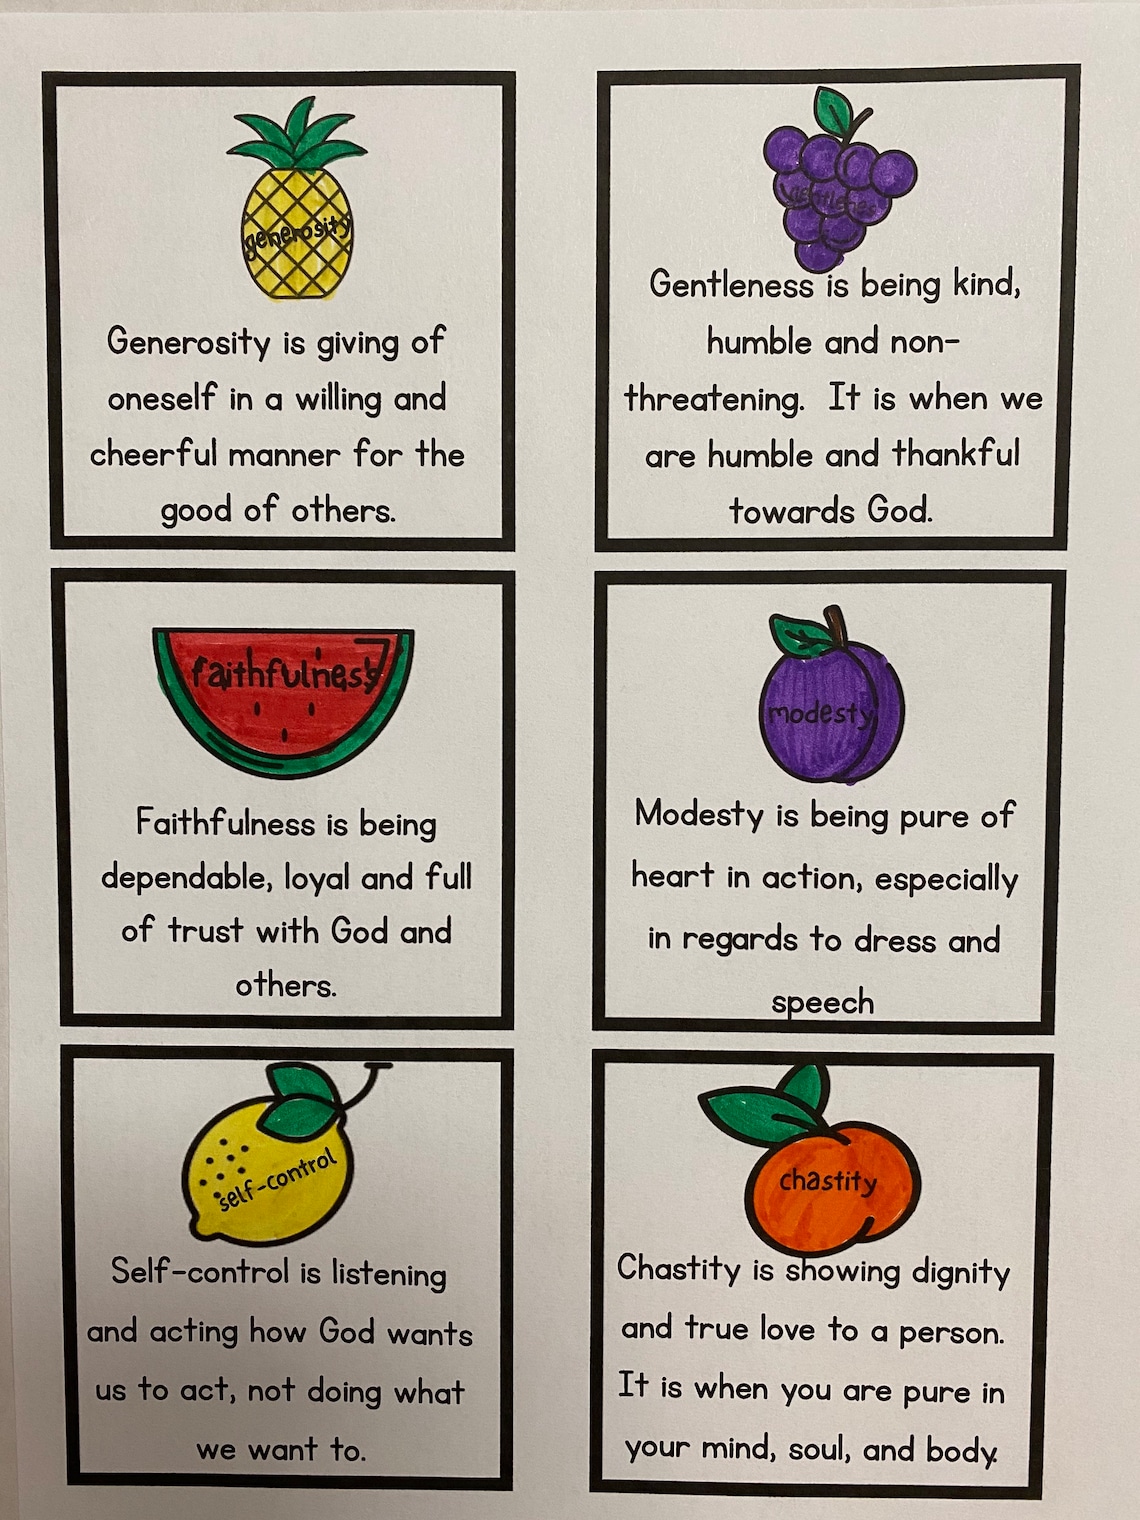 generosity
Generosity is giving of
oneself in a willing and
cheerful manner for the
good of others.
gentleness
Gentleness is being kind,
humble and non-
threatening. It is when we
are humble and thankful
towards God.
faithfulness
Faithfulness is being
dependable, loyal and full
of trust with God and
others.
modesty
Modesty is being pure of
heart in action, especially
in regards to dress and
speech
self-control
Self-control is listening
and acting how God wants
us to act, not doing what
we want to.
chastity
Chastity is showing dignity
and true love to a person.
It is when you are pure in
your mind, soul, and body.